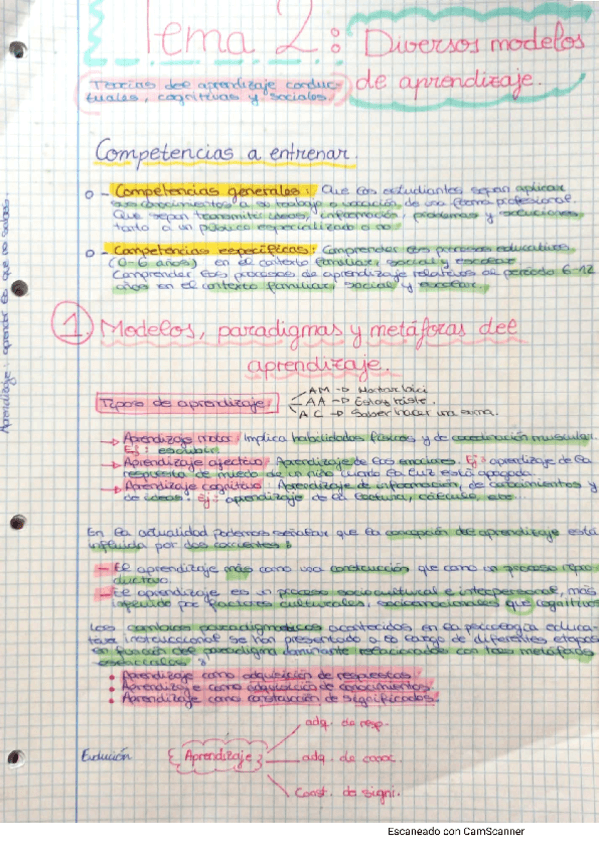 Tema 2: Diversos modelos
de aprendizaje.
Teorías del aprendizaje conduc-
tuales, cognitivas y sociales
Competencias a entrenar
- Competencias generales: Que los estudiantes sepan aplicar
sus conocimientos a su trabajo o vocación de una forma profesional.
Que sepan transmitir ideas, información, problemas y soluciones
tanto a un público especializado o no.
- Competencias específicas: Comprender los procesos educativos
(0-6 años) en el contexto familiar, social y escolar
Comprender los procesos de aprendizaje relativos al período 6-12
años en el contexto familiar, social y escolar.
Aprendizaje: aprender lo que no sabes.
1 Modelos, paradigmas y metáforas del
aprendizaje.
Tipos de aprendizaje:
AM → Montar bici
AA → Estoy triste.
AC → Saber hacer una suma.
→ Aprendizaje motor: Implica habilidades físicas y de coordinación muscular.
Ej: escribir
→ Aprendizaje afectivo: Aprendizaje de las emociones. Ej: aprendizaje de la
respuesta de miedo de un niño cuando la luz está apagada.
→ Aprendizaje cognitivo: Aprendizaje de información, de conocimientos y
de ideas. Ej: aprendizaje de la lectura, cálculo, etc...
En la actualidad podemos señalar que la concepción del aprendizaje está
influida por dos corrientes:
- El aprendizaje más como una construcción que como un proceso repro-
ductivo.
- El aprendizaje es un proceso sociocultural e interpersonal, más
influido por factores culturales, socioemocionales que cognitivos
Los cambios paradigmáticos acontecidos en la psicología educa-
tiva instruccional se han presentado a lo largo de diferentes etapas
en función del paradigma dominante relacionado con tres metáforas
esenciales:
• Aprendizaje como adquisición de respuestas.
• Aprendizaje como adquisición de conocimientos.
• Aprendizaje como construcción de significados.
Evolución
Aprendizaje
adq. de resp.
adq. de conoc.
Const. de signi.
Escaneado con CamScanner